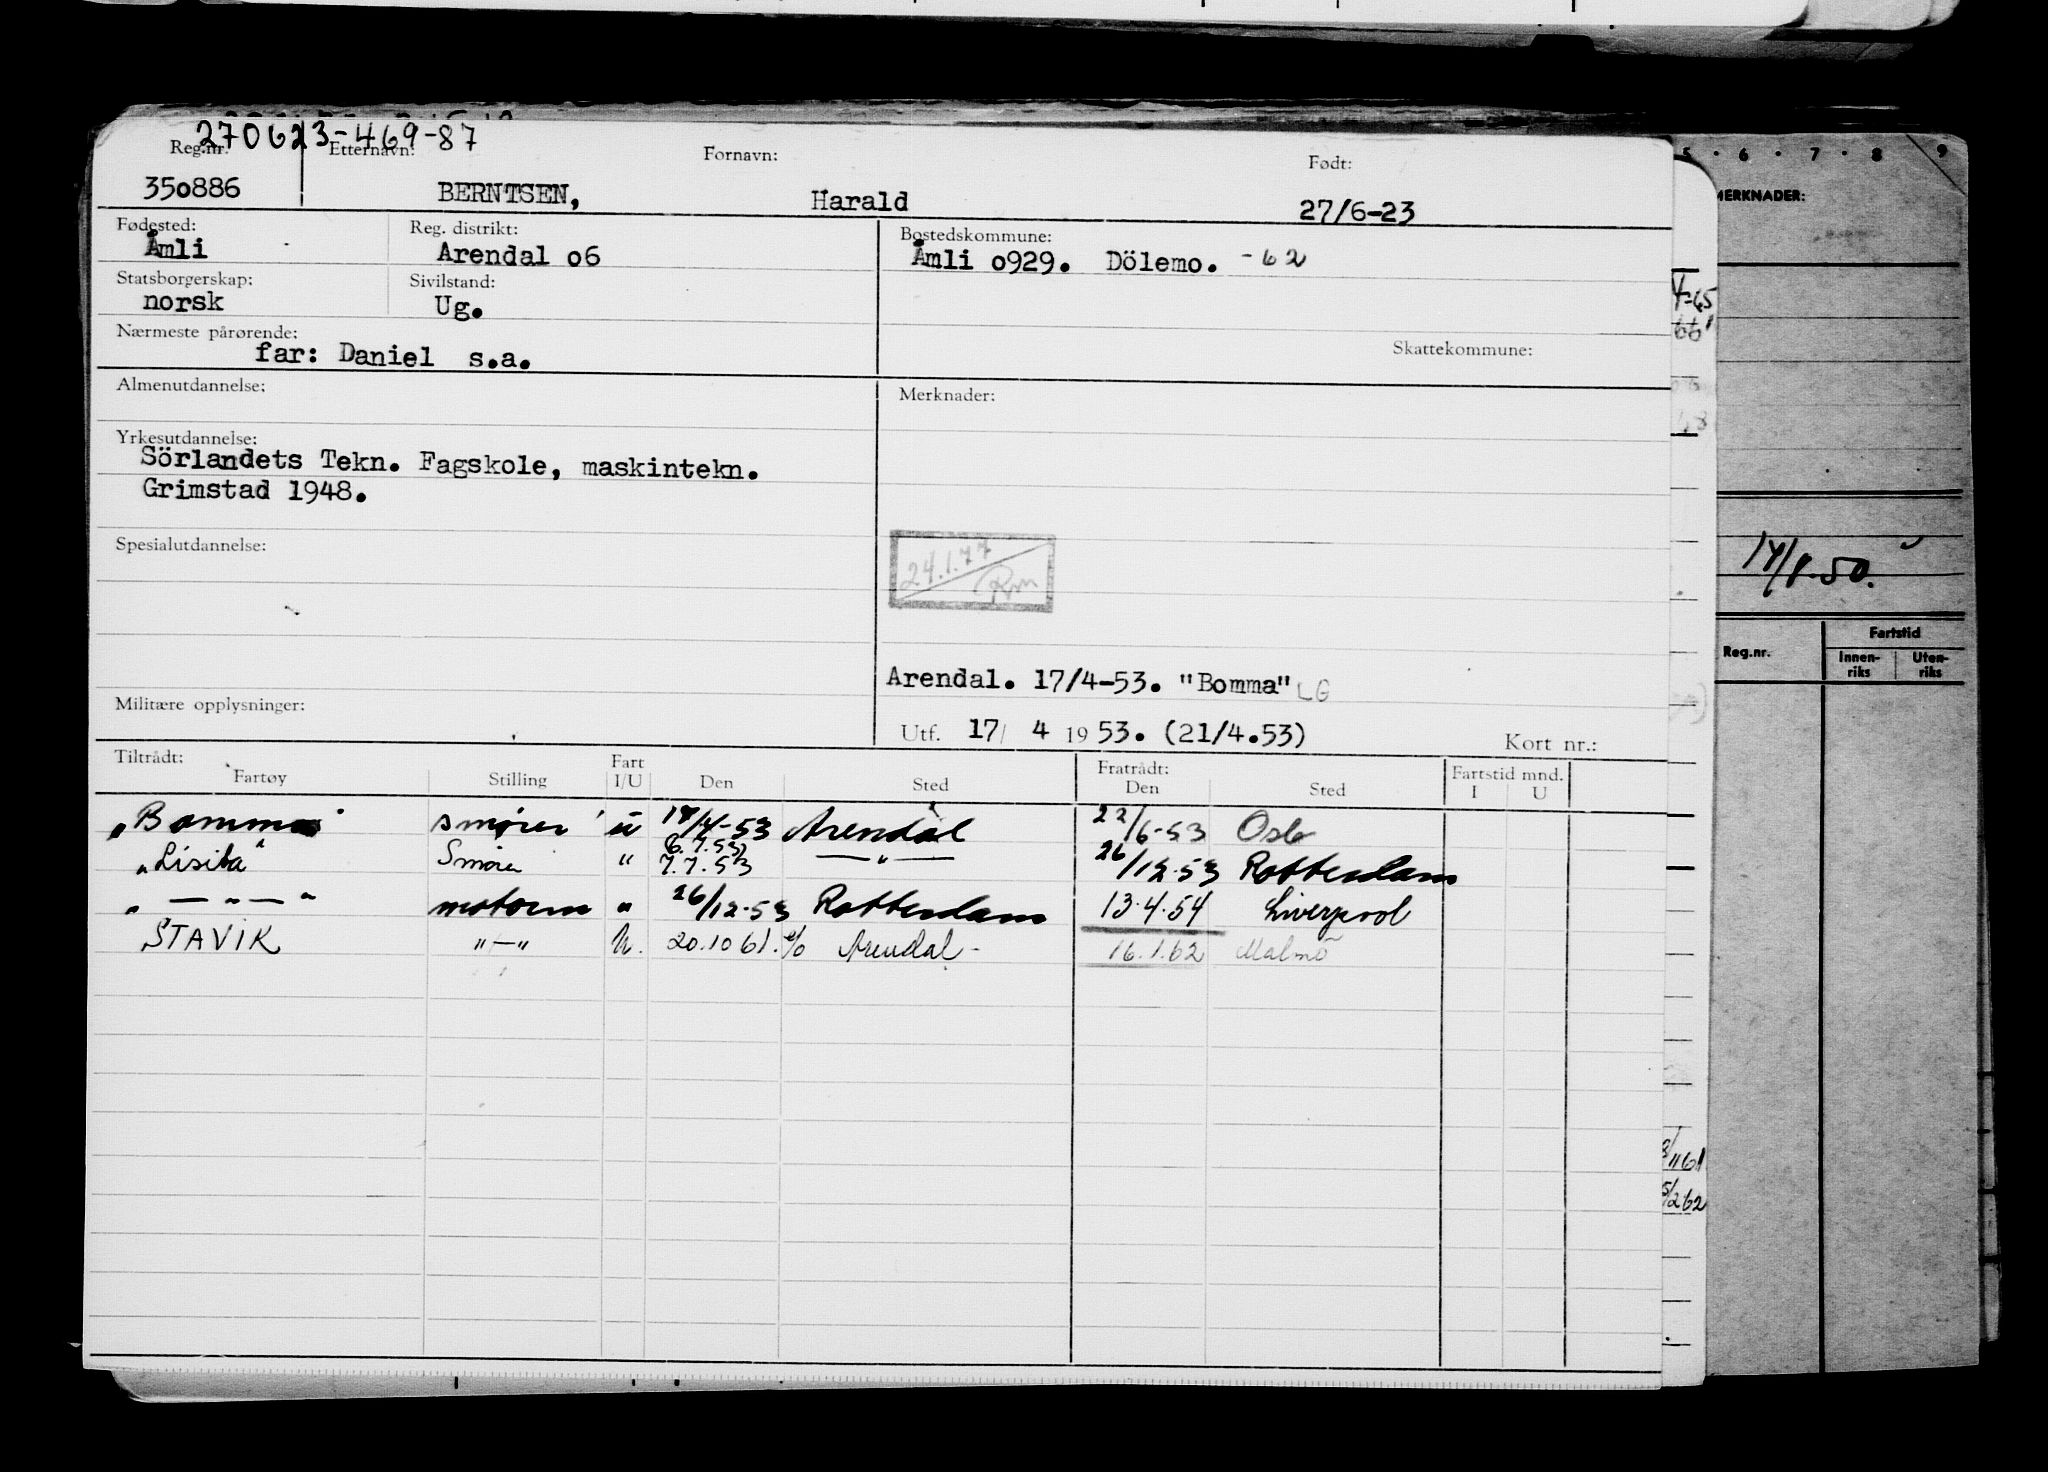 270623-469-87
Reg.nr. Etternavn: Fornavn: Født:
350886 BERNTSEN, Harald 27/6-23
Fødested: Reg. distrikt: Bostedskommune:
Åmli Arendal o6 Åmli o929. Dölemo. -62
Statsborgerskap: Sivilstand:
norsk Ug.
Nærmeste pårørende: Skattekommune:
far: Daniel s.a.
Almenutdannelse: Merknader:
Yrkesutdannelse:
Sörlandets Tekn. Fagskole, maskintekn.
Grimstad 1948.
Spesialutdannelse:
24.1.77
Arendal. 17/4-53. "Bomma" LG
Militære opplysninger:
Utf. 17/ 4 1953. (21/4.53) Kort nr.:
Tiltrådt: Fart Fratrådt: Fartstid mnd.
Fartøy Stilling I/U Den Sted Den Sted I U
"Bomma" smører u 18/4-53 Arendal 22/6-53 Oslo
6.7.53)
"Lisita" Smører " 7.7.53 —"— 26/12-53 Rotterdam
" —"— " motorm " 26/12-53 Rotterdam 13.4.54 Liverpool
STAVIK "—" U. 20.10 61. Arendal- 16.1.62 Malmö
5 . 6 . 7 . 8 . 9
MERKNADER:
Reg.nr. Fartstid
Innen-riks Uten-riks